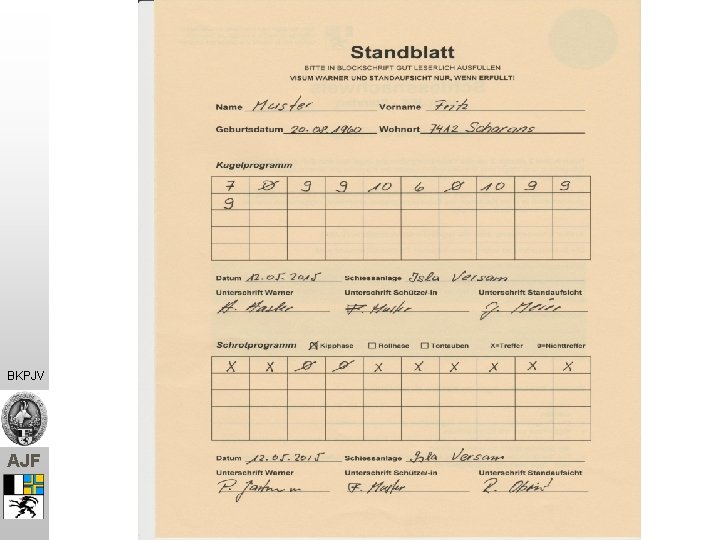 Standblatt
BITTE IN BLOCKSCHRIFT GUT LESERLICH AUSFÜLLEN
VISUM WARNER UND STANDAUFSICHT NUR, WENN ERFÜLLT!
Name Muster Vorname Fritz
Geburtsdatum 20.08.1960 Wohnort 7412 Scharans
Kugelprogramm
7 Ø 9 9 10 6 Ø 10 9 9
9
Datum 12.05.2015 Schiessanlage Isla Versam
Unterschrift Warner Unterschrift Schütze/-in Unterschrift Standaufsicht
F. Muster J. Meier
Schrotprogramm ☒ Kipphase ☐ Rollhase ☐ Tontauben X=Treffer ø=Nichttreffer
X X Ø Ø X X X X X X
Datum 12.05.2015 Schiessanlage Isla Versam
Unterschrift Warner Unterschrift Schütze/-in Unterschrift Standaufsicht
F. Muster
BKPJV
AJF